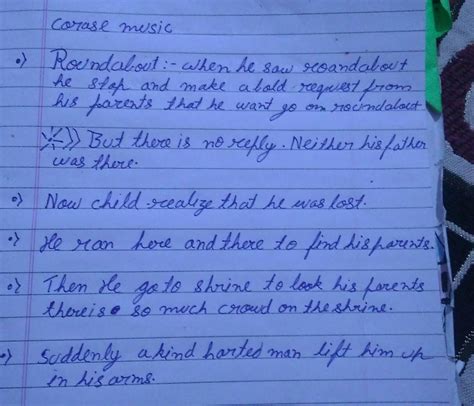 corase music
Roundabout :- when he saw roundabout
he stop and make a bold request from
his parents that he want go on roundabout
But there is no reply. Neither his father
was there.
Now child realize that he was lost.
He ran here and there to find his parents.
Then He go to shrine to look his parents
there is so much crowd on the shrine.
Suddenly a kind harted man lift him up
in his arms.